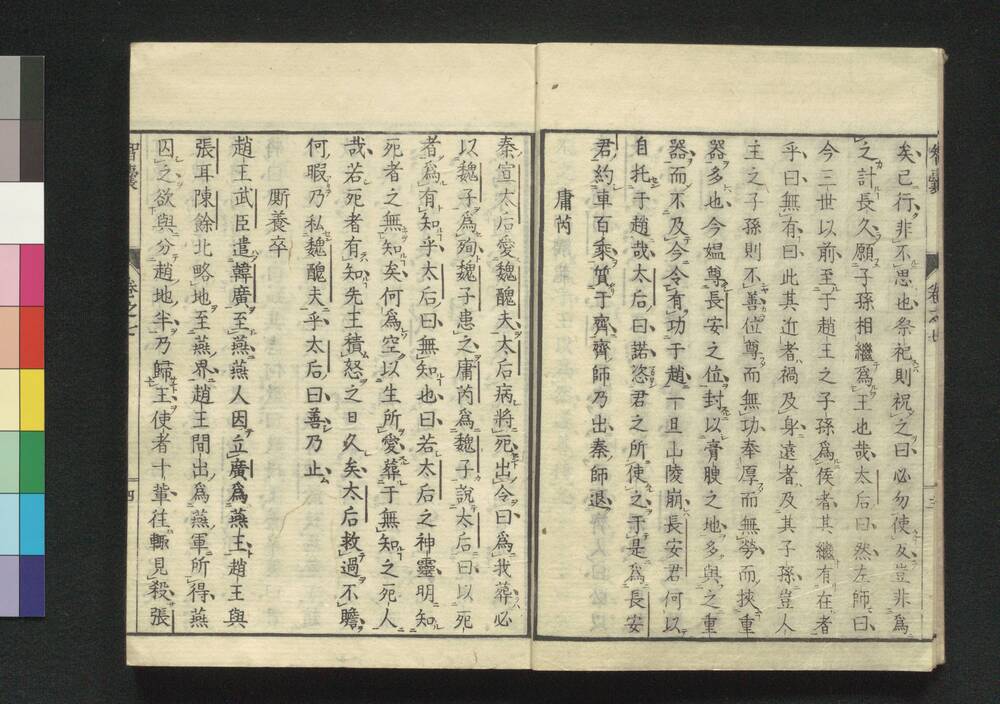 矣已行非不思也祭祀則祝之曰必勿使反豈非爲
之計長久願子孫相繼爲王也哉太后曰然左師曰
今三世以前至于趙王之子孫爲侯者其繼有在者
乎曰無有曰此其近者禍及身遠者及其子孫豈人
主之子孫則不善位尊而無功奉厚而無勞而挾重
器多也今媼尊長安之位封以膏腴之地多與之重
器而不及今令有功于趙一旦山陵崩長安君何以
自托于趙哉太后曰諾恣君之所使之于是爲長安
君約車百乘質于齊齊師乃出秦師退
庸芮
秦宣太后愛魏醜夫太后病將死出令曰爲我葬必
以魏子爲殉魏子患之庸芮爲魏子說太后曰以死
者爲有知乎太后曰無知也曰若太后之神靈明知
死者之無知矣何爲空以生所愛葬于無知之死人
哉若死者有知先王積怒之日久矣太后救過不贍
何暇乃私魏醜夫乎太后曰善乃止
厮養卒
趙王武臣遣韓廣至燕燕人因立廣爲燕王趙王與
張耳陳餘北略地至燕界趙王間出爲燕軍所得燕
囚之欲與分趙地半乃歸王使者十輩往輙見殺張
智囊
卷之七
四